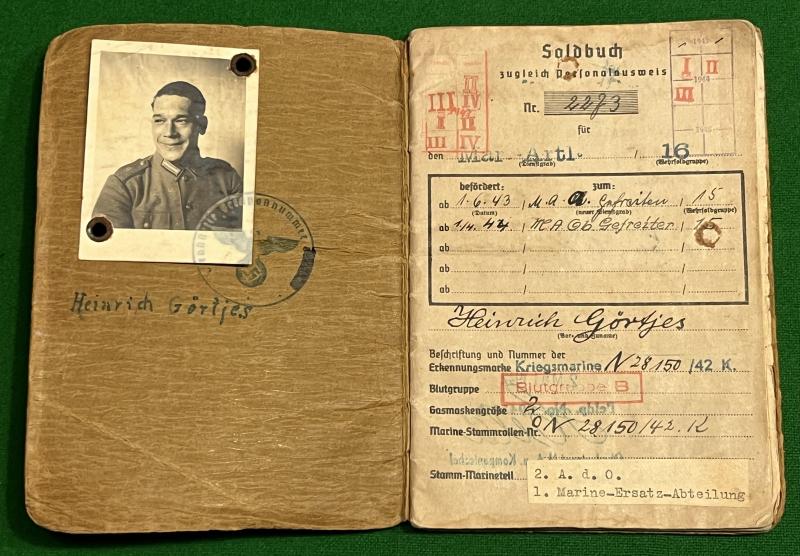 Heinrich Görtjes
Soldbuch
zugleich Personalausweis
Nr. 2273
für
den Mar. Artl. / 16
(Dienstgrad) (Wehrsoldgruppe)
befördert: zum:
ab 1.6.43 / M.A.a. Gefreiten / 15
(Datum) (neuer Dienstgrad) (Wehrsoldgruppe)
ab 1/4.44 / M.A.Ob.Gefreiter / 15
ab / /
ab / /
ab / /
Heinrich Görtjes
(Vor- und Zuname)
Beschriftung und Nummer der
Erkennungsmarke Kriegsmarine N 28150 /42 K.
Blutgruppe Blutgruppe B
Gasmaskengröße 2
Marine-Stammrollen-Nr. N 28150/42.K
Stamm-Marineteil 2. A. d. O.
1. Marine-Ersatz-Abteilung